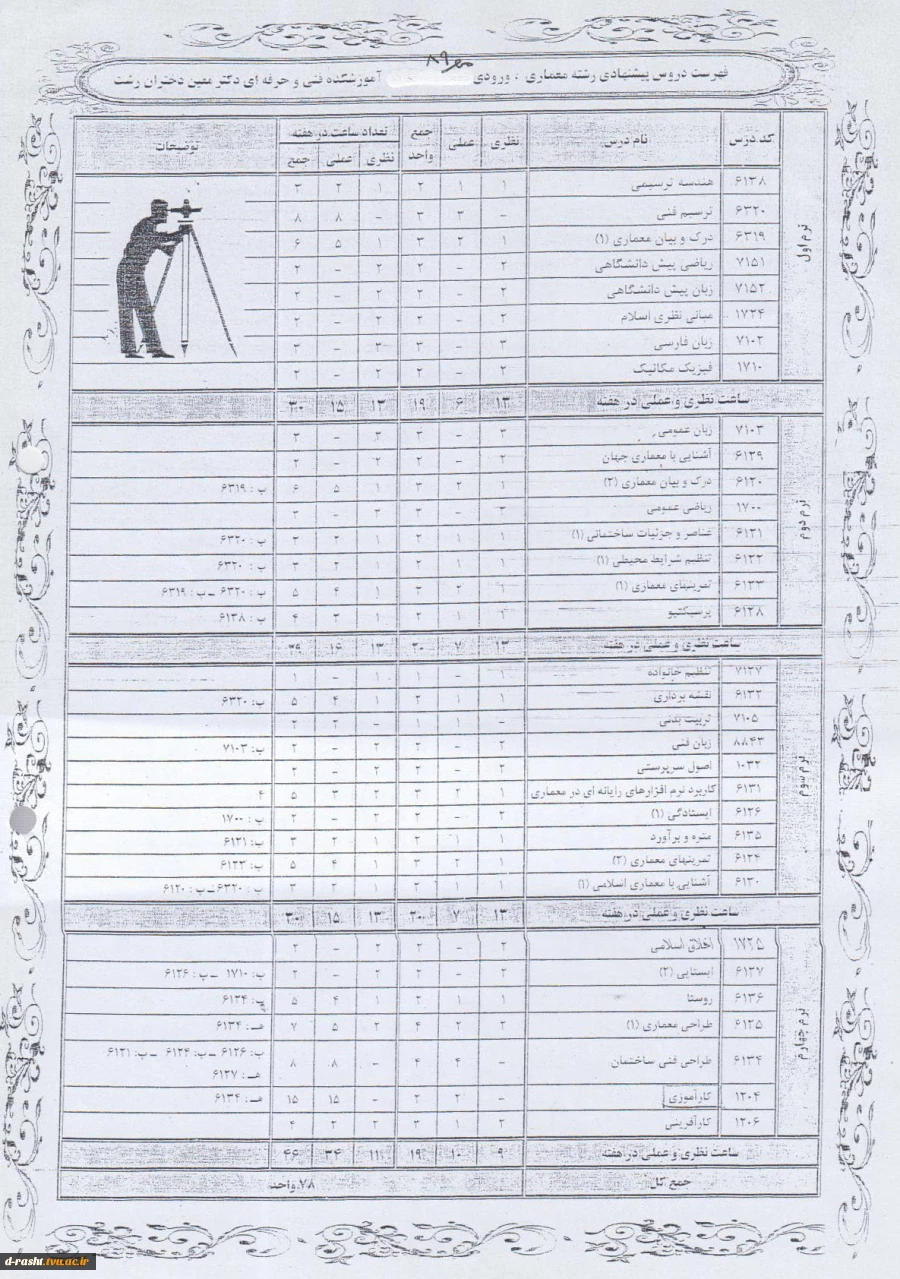 مهر ۸۹
فهرست دروس پیشنهادی رشته معماری ، ورودی آموزشکده فنی و حرفه ای دکتر معین دختران رشت
کد درس نام درس نظری عملی جمع واحد تعداد ساعت در هفته توضیحات
نظری عملی جمع
ترم اول
۶۱۳۸ هندسه ترسیمی ۱ ۱ ۲ ۱ ۲ ۳
۶۳۲۰ ترسیم فنی - ۳ ۳ - ۸ ۸
۶۳۱۹ درک و بیان معماری (۱) ۱ ۲ ۳ ۱ ۵ ۶
۷۱۵۱ ریاضی پیش دانشگاهی ۲ - ۲ ۲ - ۲
۷۱۵۲ زبان پیش دانشگاهی ۲ - ۲ ۲ - ۲
۱۷۲۴ مبانی نظری اسلام ۲ - ۲ ۲ - ۲
۷۱۰۲ زبان فارسی ۳ - ۳ ۳ - ۳
۱۷۱۰ فیزیک مکانیک ۲ - ۲ ۲ - ۲
ساعت نظری و عملی در هفته ۱۳ ۶ ۱۹ ۱۳ ۱۵ ۳۰
ترم دوم
۷۱۰۳ زبان عمومی ۳ - ۳ ۳ - ۳
۶۱۲۹ آشنایی با معماری جهان ۲ - ۲ ۲ - ۲
۶۱۲۰ درک و بیان معماری (۲) ۱ ۲ ۳ ۱ ۵ ۶ پ : ۶۳۱۹
۱۷۰۰ ریاضی عمومی ۳ - ۳ ۳ - ۳
۶۱۲۱ عناصر و جزئیات ساختمانی (۱) ۱ ۱ ۲ ۱ ۲ ۳ پ : ۶۳۲۰
۶۱۲۲ تنظیم شرایط محیطی (۱) ۱ ۱ ۲ ۱ ۲ ۳ پ : ۶۳۲۰
۶۱۲۳ تمرینهای معماری (۱) ۱ ۲ ۳ ۱ ۴ ۵ پ : ۶۳۲۰ ـ پ : ۶۳۱۹
۶۱۲۸ پرسپکتیو ۱ ۱ ۲ ۱ ۳ ۴ پ : ۶۱۳۸
ساعت نظری و عملی در هفته ۱۳ ۷ ۲۰ ۱۳ ۱۶ ۲۹
ترم سوم
۷۱۲۷ تنظیم خانواده ۱ - ۱ ۱ - ۱
۶۱۳۲ نقشه برداری ۱ ۱ ۲ ۱ ۴ ۵ پ: ۶۳۲۰
۷۱۰۵ تربیت بدنی - ۱ ۱ - ۲ ۲
۸۸۴۳ زبان فنی ۲ - ۲ ۲ - ۲ پ: ۷۱۰۳
۱۰۳۲ اصول سرپرستی ۲ - ۲ ۲ - ۲
۶۱۳۱ کاربرد نرم افزارهای رایانه ای در معماری ۱ ۲ ۳ ۲ ۳ ۵ ۴
۶۱۲۶ ایستادگی (۱) ۲ - ۲ ۲ - ۲ پ : ۱۷۰۰
۶۱۳۵ متره و برآورد ۱ ۱ ۲ ۱ ۲ ۳ پ: ۶۱۲۱
۶۱۲۴ تمرینهای معماری (۲) ۱ ۲ ۳ ۱ ۴ ۵ پ: ۶۱۲۳
۶۱۳۰ آشنایی با معماری اسلامی (۱) ۱ ۱ ۲ ۱ ۲ ۳ پ : ۶۳۲۰ـ پ : ۶۱۲۰
ساعت نظری و عملی در هفته ۱۳ ۷ ۲۰ ۱۳ ۱۵ ۳۰
ترم چهارم
۱۷۲۵ اخلاق اسلامی ۲ - ۲ ۲ - ۲
۶۱۲۷ ایستایی (۲) ۲ - ۲ ۲ - ۲ پ: ۱۷۱۰ ـ پ: ۶۱۲۶
۶۱۳۶ روستا ۱ ۱ ۲ ۱ ۴ ۵ پ: ۶۱۲۴
۶۱۲۵ طراحی معماری (۱) ۲ ۲ ۴ ۲ ۵ ۷ هـ: ۶۱۳۴
۶۱۳۴ طراحی فنی ساختمان - ۴ ۴ - ۸ ۸ پ: ۶۱۲۶ ـ پ: ۶۱۲۴ ـ پ: ۶۱۲۱
هـ: ۶۱۲۷
۱۲۰۴ کارآموزی - ۲ ۲ - ۱۵ ۱۵ هـ: ۶۱۳۴
۱۲۰۶ کارآفرینی ۲ ۱ ۳ ۲ ۲ ۴
ساعت نظری و عملی در هفته ۹ ۱۰ ۱۹ ۱۱ ۳۴ ۴۶
جمع کل ۷۸ واحد
d-rasht.tvu.ac.ir